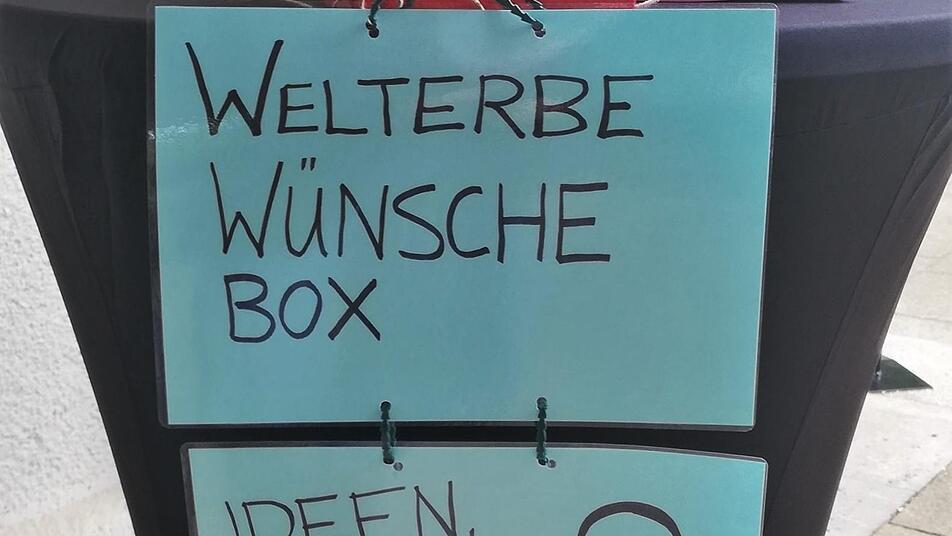 WELTERBE
WÜNSCHE
BOX
IDEEN,